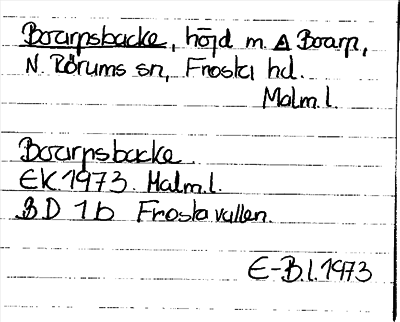 Boarpsbacke, höjd m. Δ Boarp,
N. Rörums sn, Frosta hd.
Malm.l.
Boarpsbacke
EK 1973. Malm.l.
BD 1b Frostavallen.
E-B.l. 1973